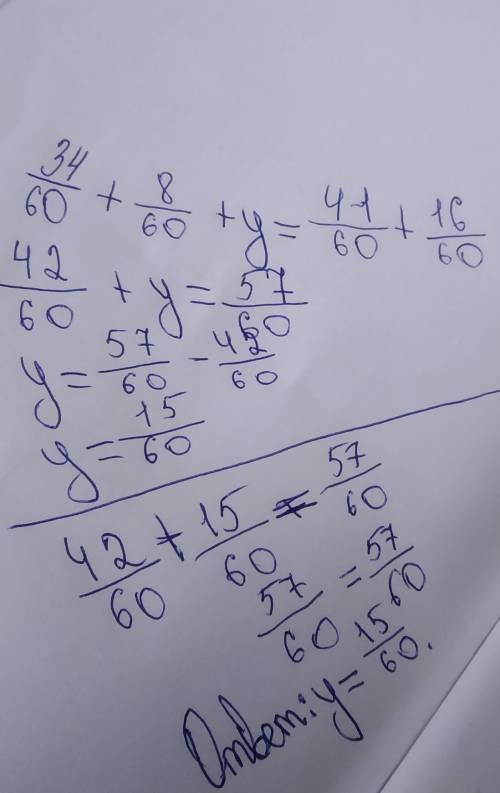 34/60 + 8/60 + y = 41/60 + 16/60
42/60 + y = 57/60
y = 57/60 - 42/60
y = 15/60
42/60 + 15/60 = 57/60
57/60 = 57/60
Ответ: y = 15/60.